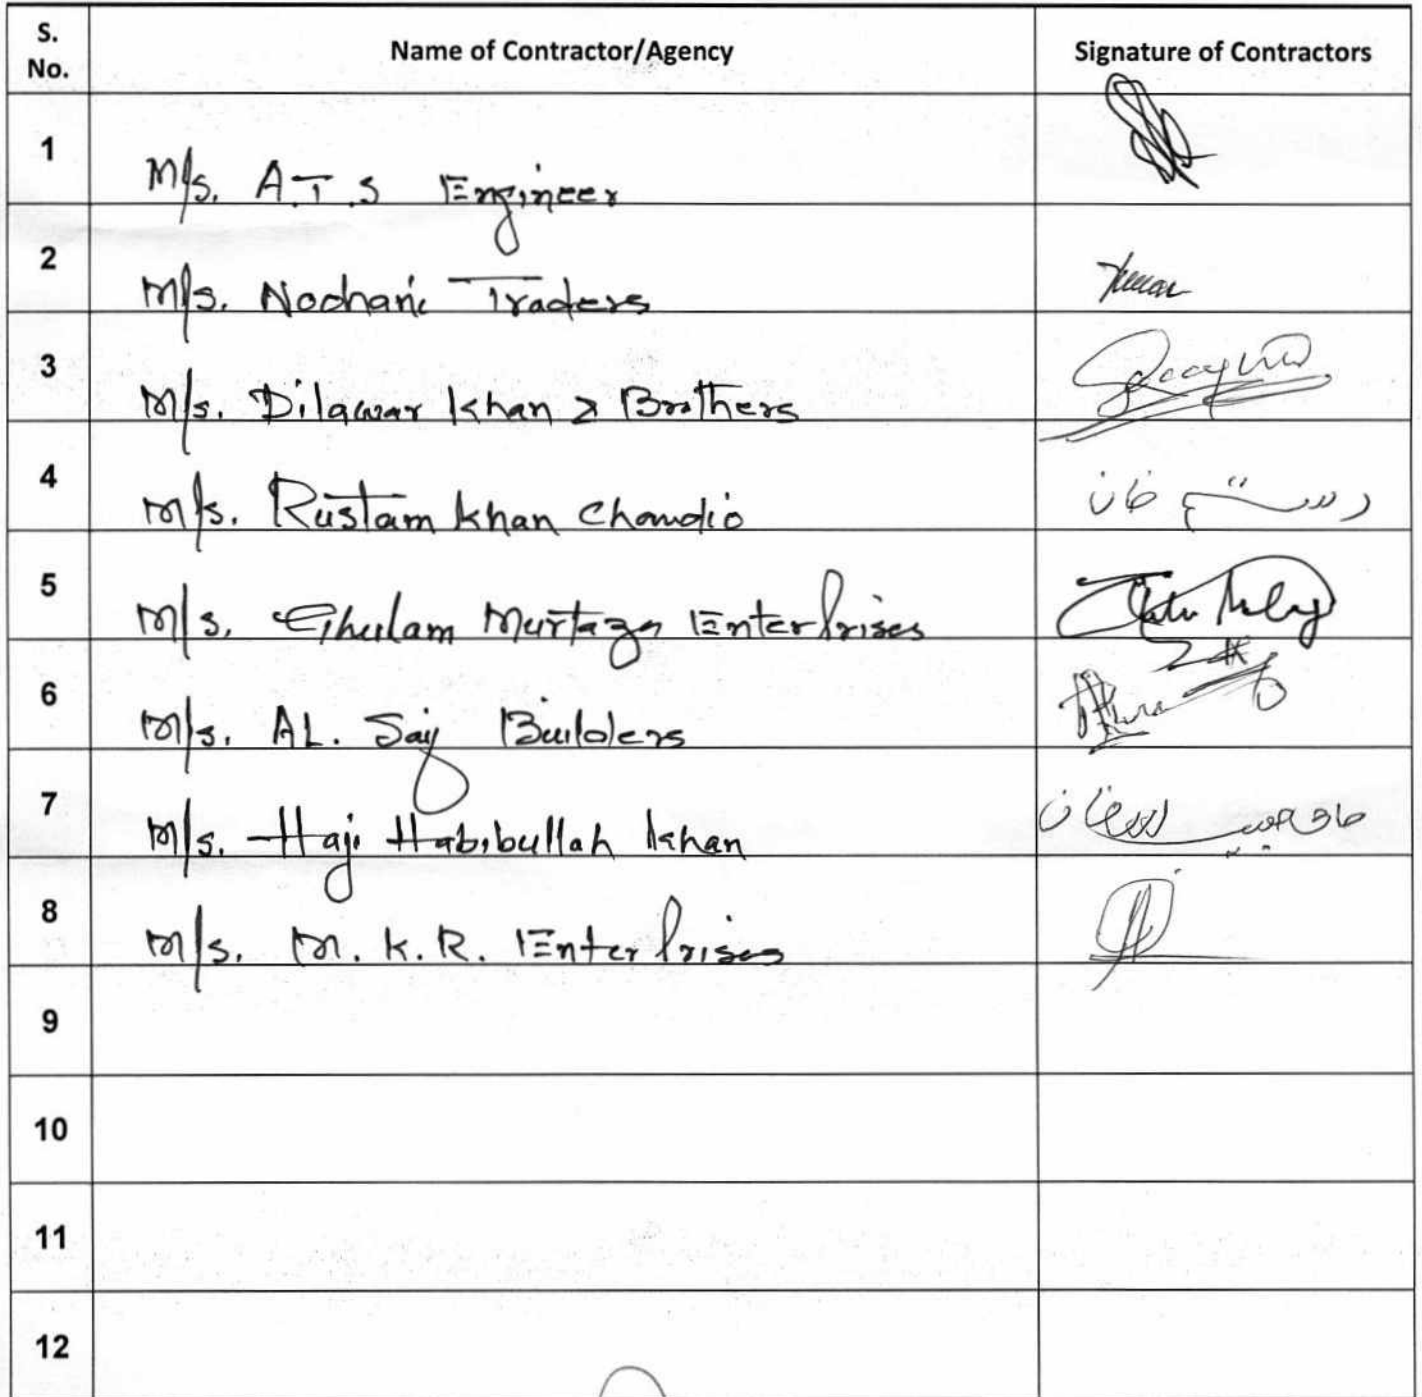 S. No. Name of Contractor/Agency Signature of Contractors
1 M/s. A.T.S Engineer
2 M/s. Nochani Traders
3 M/s. Dilawar Khan & Brothers
4 M/s. Rustam Khan Chandio رستم خان
5 M/s. Ghulam Murtaza Enterprises
6 M/s. AL. Saif Builders
7 M/s. Haji Habibullah Khan
8 M/s. M.K.R. Enterprises
9
10
11
12